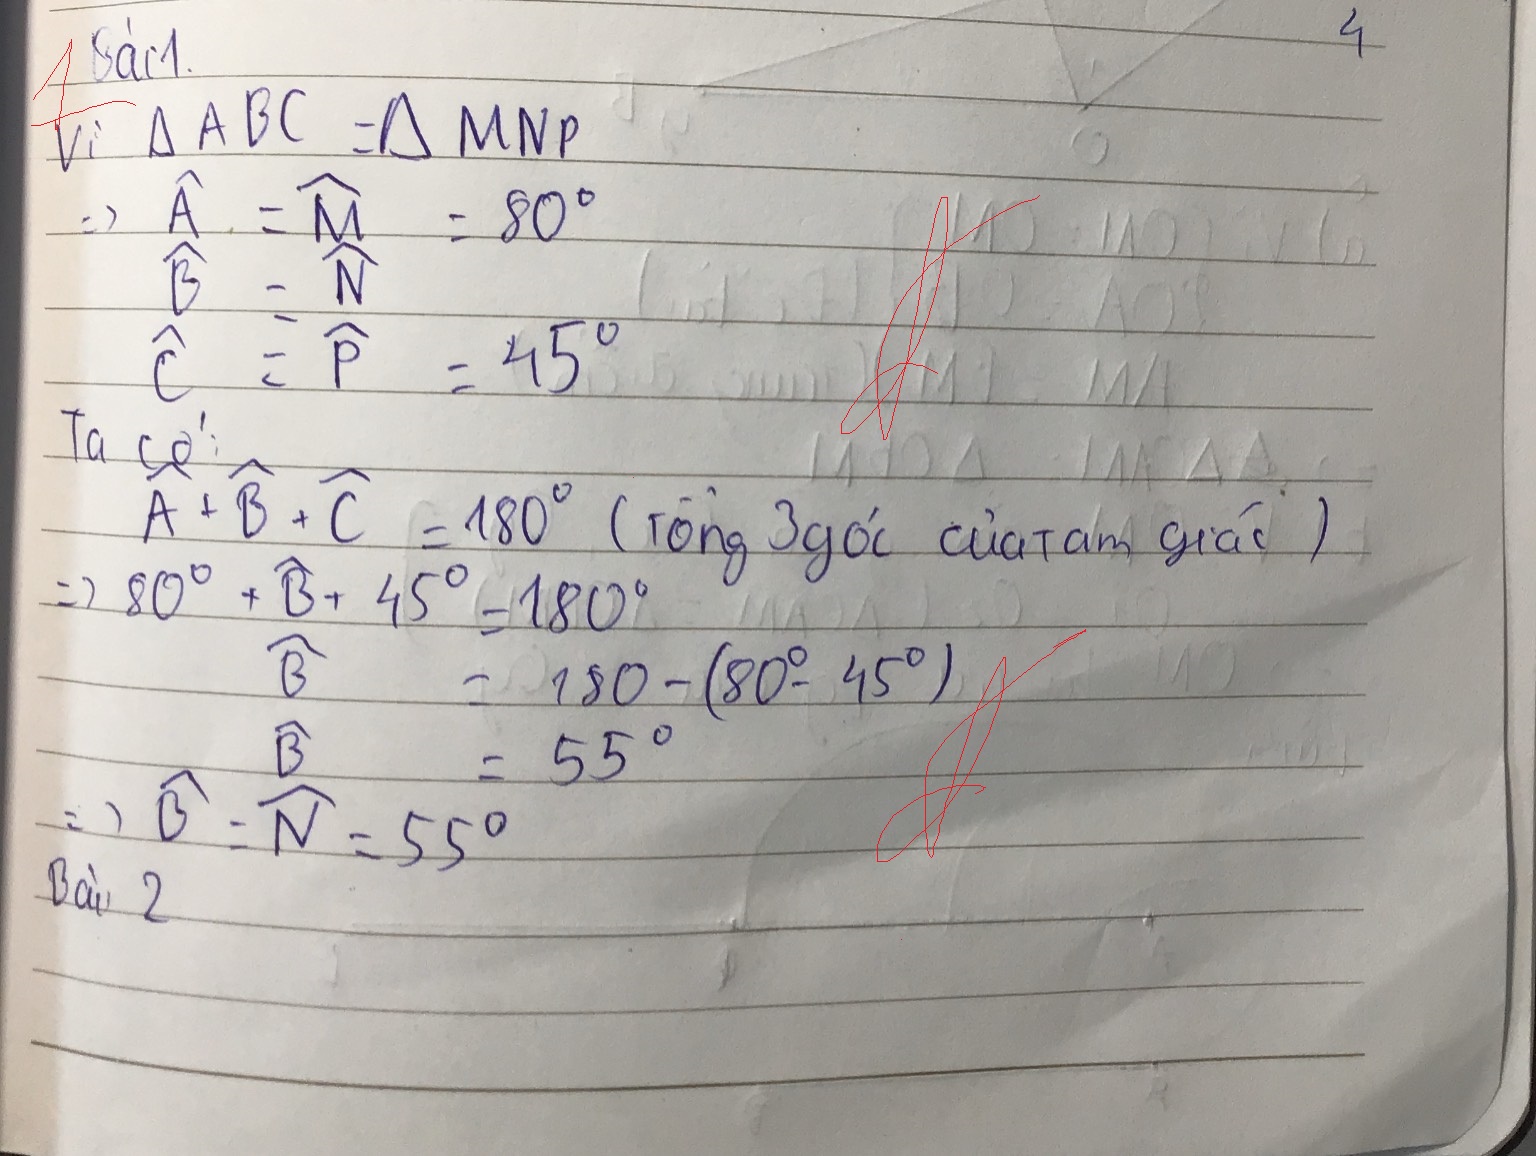 4
1 Bài 1.
Vì Δ ABC = Δ MNP
=> Â = M̂ = 80°
B̂ = N̂
Ĉ = P̂ = 45°
Ta có:
Â + B̂ + Ĉ = 180° (Tổng 3 góc của Tam giác)
=> 80° + B̂ + 45° = 180°
B̂ = 180 - (80° - 45°)
B̂ = 55°
=> B̂ = N̂ = 55°
Bài 2